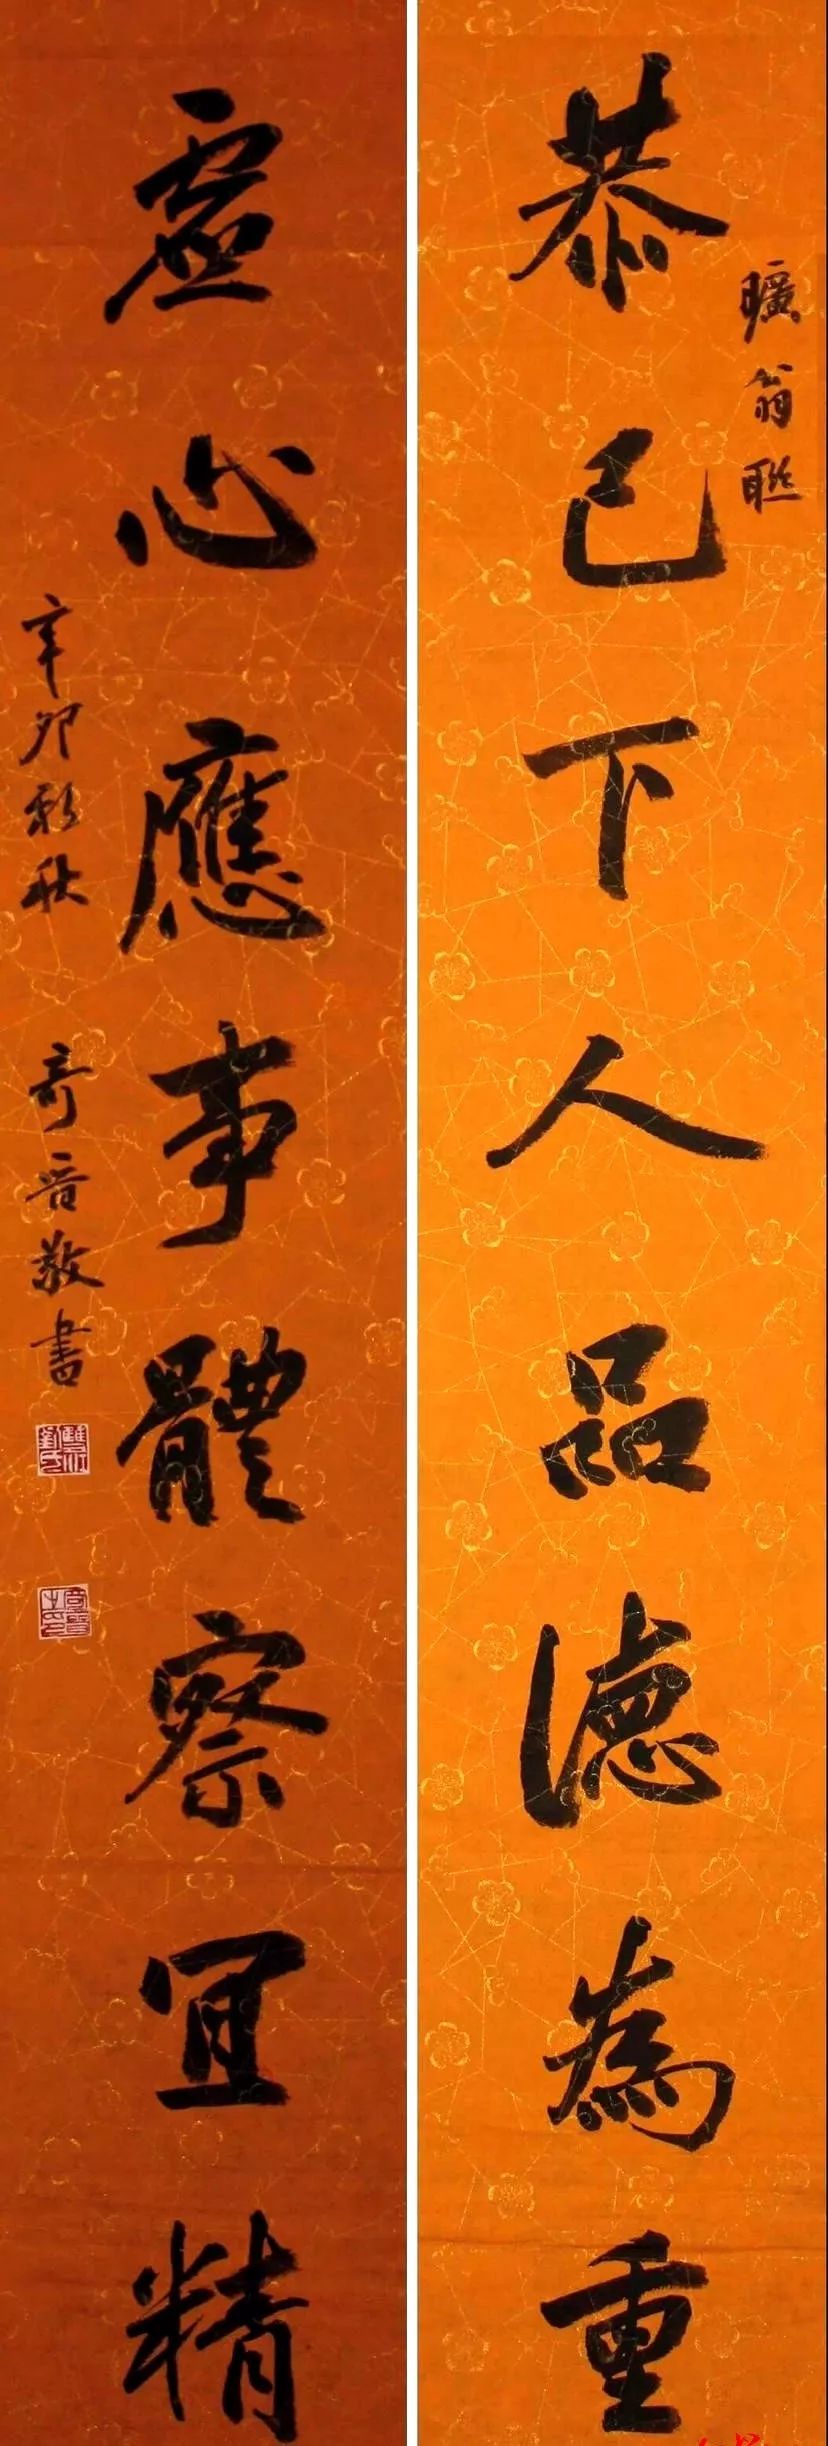 曠翁聯
恭己下人品德為重
虛心應事體察宜精
辛卯新秋 奇晋敬書